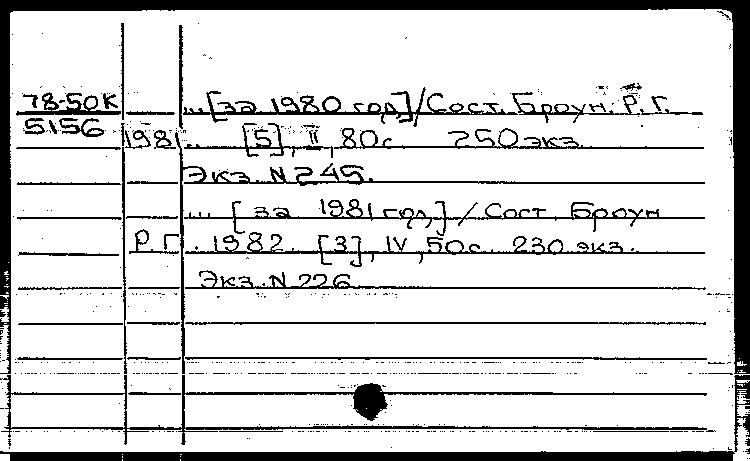 78-50К ... [за 1980 год,]/Сост. Броун. Р. Г.
5156 1981.. [5], II, 80с. 250 экз.
Экз. N 245.
... [за 1981 год,] / Сост. Броун
Р. Г. . 1982. [3], IV, 50с. 230 экз.
Экз. N 226